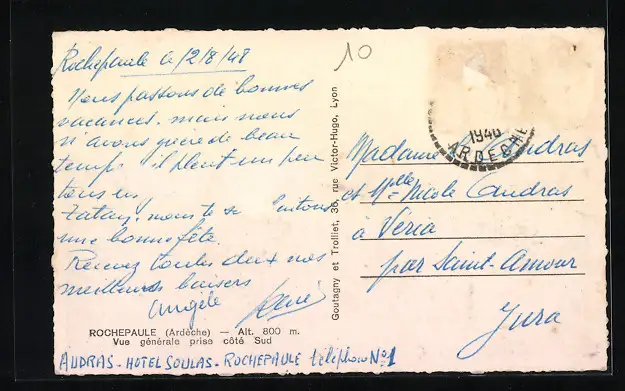 Rochepaule le 12/8/48
10
Nous passons de bonnes
vacances. mais nous
n'avons guère de beau
temps il pleut un peu
tous les
tatan, nous te souhaitons
une bonne fête.
Recevez toutes deux nos
meilleurs baisers
Angèle René
1948
ARDECHE
Madame Audras
et Melle Nicole Audras
à Véria
par Saint-Amour
Jura
Goutagny et Trolliet, 36, rue Victor-Hugo, Lyon
ROCHEPAULE (Ardèche) — Alt. 800 m.
Vue générale prise côté Sud
AUDRAS - HOTEL SOULAS - ROCHEPAULE téléphone No 1